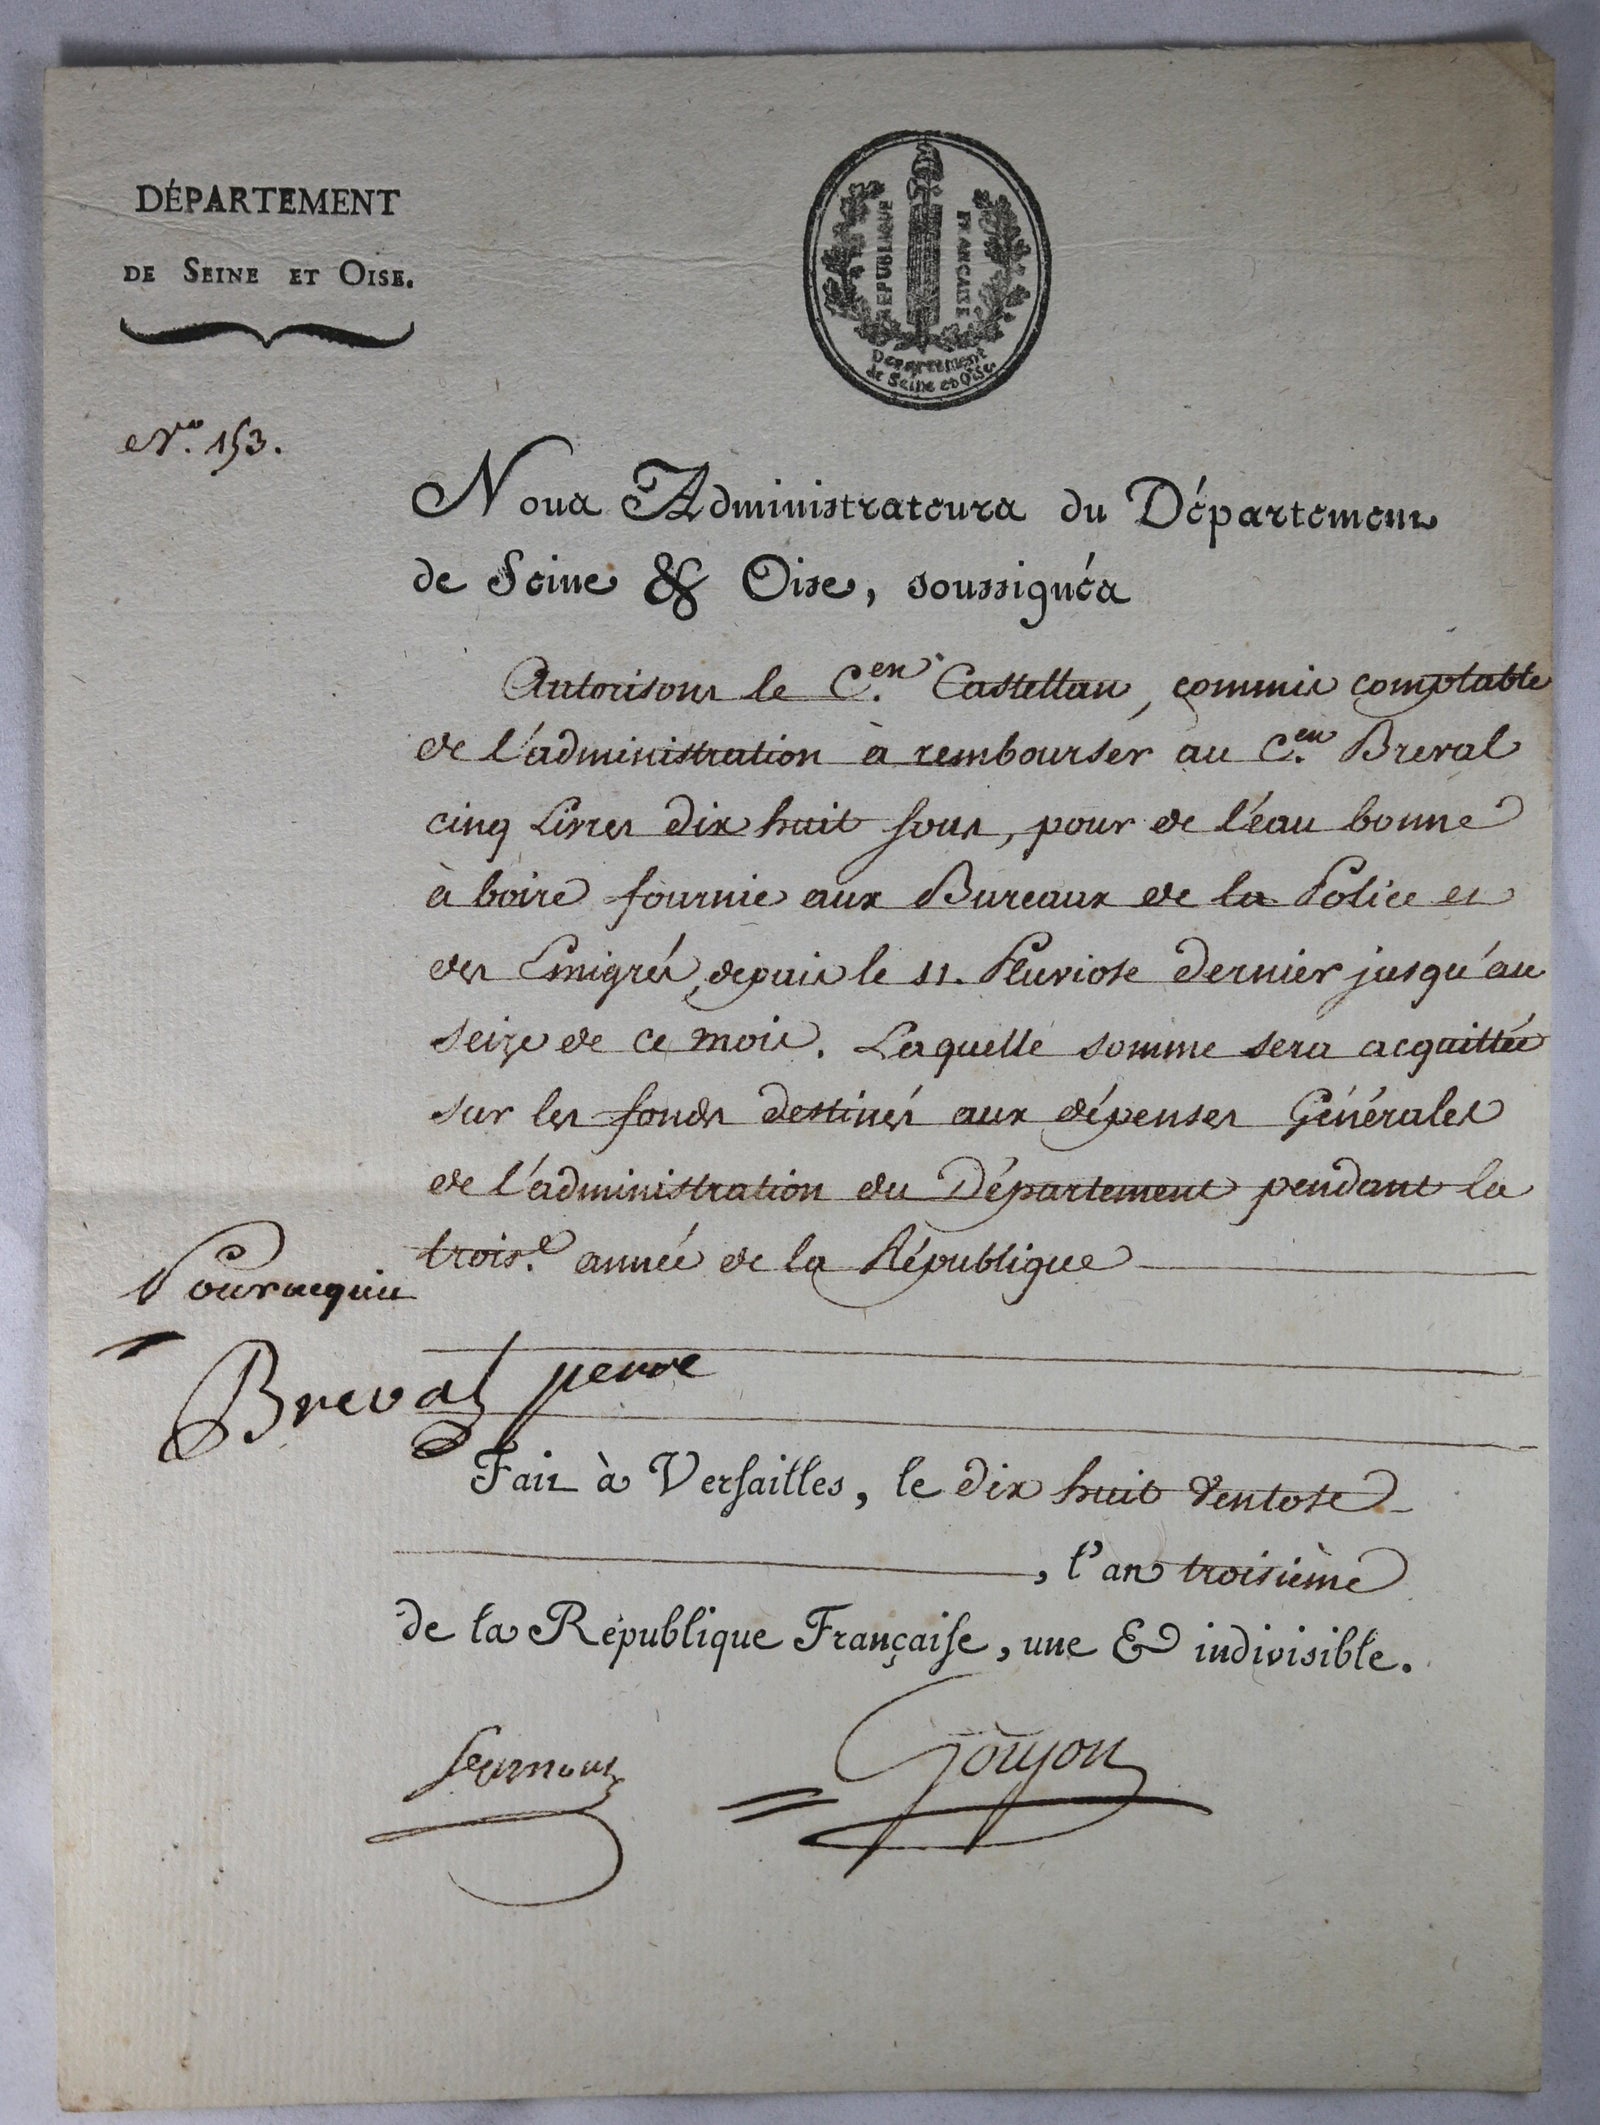 DÉPARTEMENT
DE SEINE ET OISE.
RÉPUBLIQUE FRANÇAISE
Département
de Seine et Oise
N.º 153.
Nous Administrateurs du Département
de Seine & Oise, soussignés
Autorisons le C.en Castellan, commis comptable
de l'administration à rembourser au C.en Breval
cinq Livres dix huit sous, pour de l'éau bonne
à boire fournie aux Bureaux de la Police et
des Emigrés, depuis le 11. Pluviose dernier jusqu'au
seize de ce mois. Laquelle somme sera acquittée
sur les fonds destinés aux dépenses Générales
de l'administration du Département pendant la
trois.e année de la République
Pour acquit
Breval
Fait à Versailles, le dix huit Ventose
, l'an troisième
de la République Française, une & indivisible.
Goujon